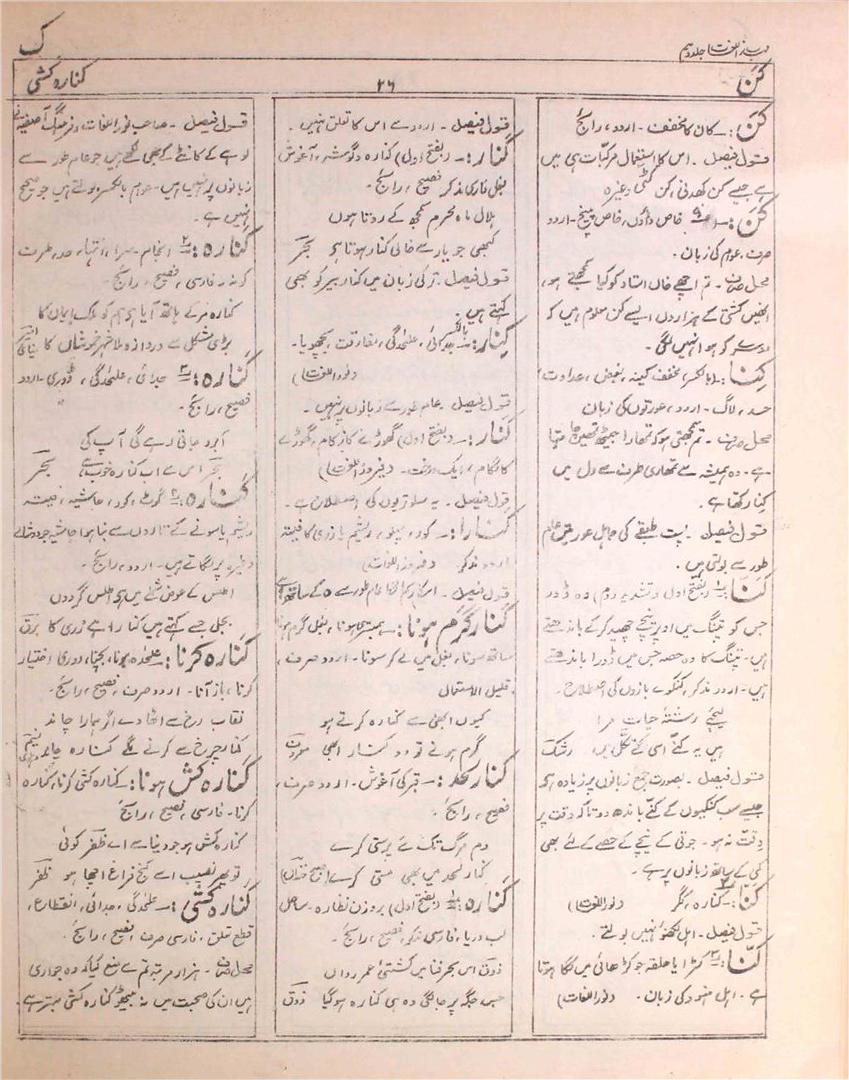 مہذب اللغات جلد دہم
ک
کَن
۲۶
کنارہ کشی
کَن :۔ کان کا مخفف ۔ اردو، رائج
قول فیصل ۔ اس کا استعمال مرکبات ہی میں
ہے جیسے کن کھدنی، کن کٹی وغیرہ
کَن :۔ خاص داؤں، خاص پیچ ۔ اردو
صرف، عوام کی زبان ۔
محل صرف ۔ تم اچھے خاں استاد کو کیا سمجھتے ہو،
انھیں کشتی کے ہزاروں ایسے کن معلوم ہیں کہ
دوسرے کو ہوا نہیں لگی ۔
کِنا :۔ (بالکسر) مخفف کینہ، بغض، عداوت،
حسد، لاگ ۔ اردو، عورتوں کی زبان
محل صرف ۔ تم سمجھتی ہو کہ تمھارا جیٹھ تمھیں چاہتا
ہے ۔ وہ ہمیشہ سے تمھاری طرف سے دل میں
کنا رکھتا ہے ۔
قول فیصل ۔ پست طبقے کی جاہل عورتیں عام
طور سے بولتی ہیں ۔
کَنّا :۔ (بفتح اول و تشدید دوم) وہ ڈور
جس کو پتنگ میں اوپر نیچے چھید کر کے باندھتے
ہیں ۔ پتنگ کا وہ حصہ جس میں ڈورا باندھتے
ہیں ۔ اردو مذکر، کنکوے بازوں کی اصطلاح ۔
لیجے رشتۂ حیات مرا
ہیں یہ کنّے اسی کے نکّل میں رشک
قول فیصل ۔ بصورت جمع زبانوں پر زیادہ ہے
جیسے سب کنکیوں کے کنّے باندھ دو تاکہ وقت پر
دقت نہ ہو ۔ جوتی کے نیچے کے حصے کے لئے بھی
کمی کے ساتھ زبانوں پر ہے ۔
کنّا :۔ کنارہ، نگر (نور اللغات)
قول فیصل ۔ اہل لکھنؤ نہیں بولتے ۔
کنّا :۔ کڑا یا حلقہ جو کڑھائی میں لگا ہوتا
ہے ۔ اہل ہنود کی زبان ۔ (نور اللغات)
قول فیصل ۔ اردو سے اس کا تعلق نہیں ۔
کَنار :۔ (بفتح اول) کنارہ و گوشہ، آغوش
بغل فارسی مذکر فصیح، رائج ۔
ہلال ماہ محرم سمجھ کے روتا ہوں
کبھی جو یار سے خالی کنار ہوتا ہے بحر
قول فیصل ۔ ترکی زبان میں کنار بیر کو بھی
کہتے ہیں ۔
کِنار :۔ بالکسر جدائی، علٰحدگی، مفارقت، بچھویا ۔
(نور اللغات)
قول فیصل ۔ عام طور سے زبانوں پر نہیں ۔
کَنار :۔ (بفتح اول) گھوڑے کا زکام، گھوڑے
کا لگام، ایک درخت ۔ (فیروز اللغات)
قول فیصل ۔ یہ سلوتریوں کی اصطلاح ہے ۔
کنارا :۔ کور، پہلو، ریشم یا زری کا فیتہ
اردو مذکر (فیروز اللغات)
قول فیصل ۔ اس کا رسم الخط عام طور سے ہ کے ساتھ ہے
کنار گرم ہونا :۔ ہمبستر ہونا، بغل گرم ہونا
ساتھ سونا، بغل میں لے کر سونا ۔ اردو صرف،
قلیل الاستعمال
کیوں ابھی سے کنارہ کرتے ہو
گرم ہونے تو دو کنار ابھی
کنار لحد :۔ قبر کی آغوش ۔ اردو صرف،
فصیح، رائج ۔
دم مرگ تک مے پرستی کرے
کنار لحد میں بھی مستی کرے (صبح خنداں)
کنارہ :۔ (بفتح اول) بروزن نظارہ ۔ ساحل
لب دریا، فارسی مذکر، فصیح، رائج ۔
ذوق اس بحر فنا میں کشتئ عمر رواں
جس جگہ پر جا لگی وہ ہی کنارہ ہو گیا ذوق
قول فیصل ۔ صاحب نور اللغات و فرہنگ آصفیہ نے
لوہے کے کانٹے کے بھی لکھے ہیں جو عام طور سے
زبانوں پر نہیں ہیں ۔ عوام بالکسر بولتے ہیں جو صحیح
نہیں ہے ۔
کنارہ :۔ انجام، سرا، انتہا، حد، طرف
فارسی، فصیح، رائج ۔
کنارہ مر کے ہاتھ آیا ہے ہم کو
بڑی مشکل سے دروازہ ملا شہر خموشاں کا
کنارہ :۔ جدائی، علٰحدگی، دوری ۔ اردو
فصیح، رائج ۔
آبرو جاتی رہے گی آپ کی
بحر اس سے اب کنارہ خوب ہے بحر
کنارہ :۔ گوٹ، کور، حاشیہ، فیتہ
ریشم یا سونے کے تاروں سے بنا ہوا حاشیہ جو دوشالے
وغیرہ پر لگاتے ہیں ۔ اردو، رائج ۔
اطلس کے عوض شملے میں ہے اطلس گردوں
بجلی جسے کہتے ہیں کنارا ہے زری کا برق
کنارہ کرنا :۔ علٰحدہ ہونا، بچنا، دوری اختیار
کرنا، باز آنا ۔ اردو صرف، فصیح، رائج ۔
نقاب رخ سے اٹھا دے اگر ہمارا چاند
کنار چرخ سے کرنے لگے کنارہ چاند نسیم دہلوی
کنارہ کش ہونا :۔ کنارہ کشی کرنا، کنارہ
کرنا ۔ فارسی، فصیح، رائج ۔
کنارہ کش ہو جو دنیا سے اے ظفر کوئی
تو پھر نصیب اسے کنج فراغ اچھا ہو ظفر
کنارہ کشی :۔ علٰحدگی، جدائی، انقطاع،
قطع تعلق، فارسی صرف، فصیح، رائج ۔
محل صرف ۔ ہزار مرتبہ تم سے منع کیا کہ وہ جواری
ہیں ان کی صحبت میں نہ بیٹھو کنارہ کشی بہتر ہے ۔